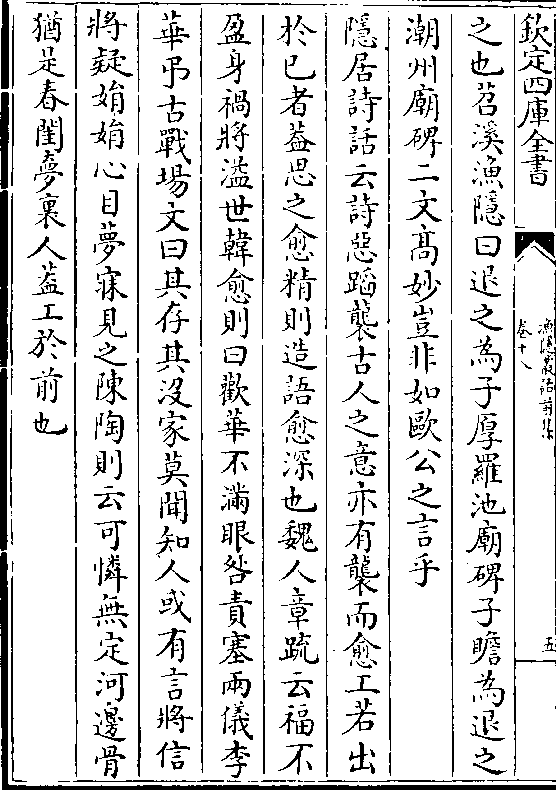 欽定四庫全書
漁隱叢話前集
卷十八
五
之也苕溪漁隱曰退之為子厚羅池廟碑子瞻為退之
潮州廟碑二文髙妙豈非如歐公之言乎
隱居詩話云詩惡蹈襲古人之意亦有襲而愈工若出
於已者葢思之愈精則造語愈深也魏人章疏云福不
盈身禍將溢世韓愈則曰歡華不滿眼咎責塞兩儀李
華弔古戰場文曰其存其沒家莫聞知人或有言將信
將疑娟娟心目夢寐見之陳陶則云可憐無定河邊骨
猶是春閨夢裏人葢工於前也